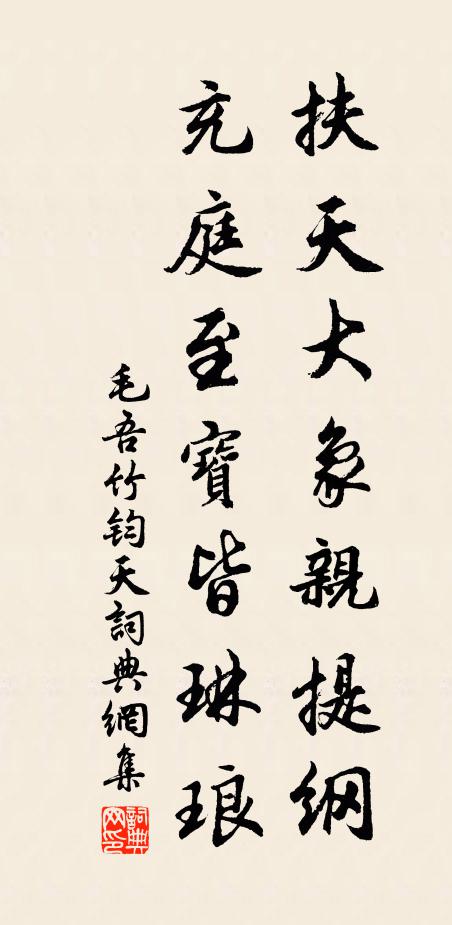 扶天大象親提綱
充庭至寶皆琳琅
毛吾竹鈞天詞典網集
詞典網印